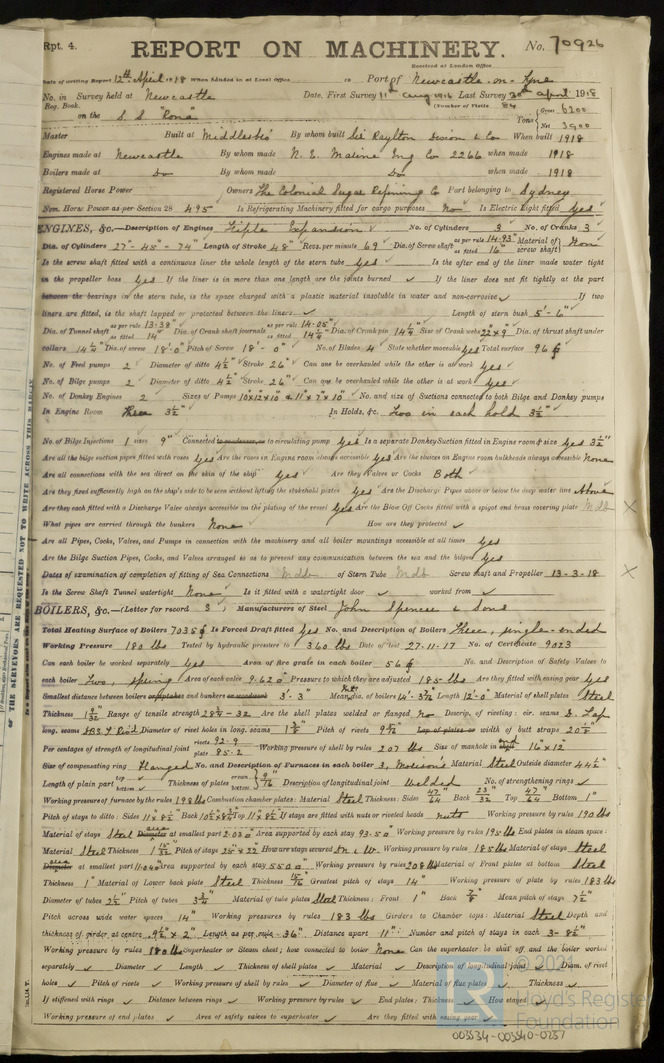 Rpt. 4. REPORT ON MACHINERY. No. 70926
Received at London Office
Date of writing Report 12th April 1918 When handed in at Local Office 19 Port of Newcastle-on-Tyne
No. in Survey held at Newcastle Date, First Survey 11th Aug 1916 Last Survey 30th April 1918
Reg. Book. (Number of Visits 84
on the S.S. "Rona" Tons { Gross 6200
Net 3900
Master Built at Middlesbro' By whom built Sir Raylton Dixon & Co When built 1918
Engines made at Newcastle By whom made N. E. Marine Eng Co 2266 when made 1918
Boilers made at Do By whom made Do when made 1918
Registered Horse Power Owners The Colonial Sugar Refining Co Port belonging to Sydney
Nom. Horse Power as per Section 28 495 Is Refrigerating Machinery fitted for cargo purposes No Is Electric Light fitted Yes
ENGINES, &c.—Description of Engines Triple Expansion No. of Cylinders 3 No. of Cranks 3
Dia. of Cylinders 27"-45"-74" Length of Stroke 48" Revs. per minute 69 Dia. of Screw shaft as per rule 14.93" as fitted 16" Material of screw shaft Iron
Is the screw shaft fitted with a continuous liner the whole length of the stern tube Yes Is the after end of the liner made water tight
in the propeller boss Yes If the liner is in more than one length are the joints burned ✓ If the liner does not fit tightly at the part
between the bearings in the stern tube, is the space charged with a plastic material insoluble in water and non-corrosive ✓ If two
liners are fitted, is the shaft lapped or protected between the liners ✓ Length of stern bush 5'-6"
Dia. of Tunnel shaft as per rule 13.38" as fitted 14" Dia. of Crank shaft journals as per rule 14.05" as fitted 14 1/4" Dia. of Crank pin 14 1/4" Size of Crank webs 22"x9" Dia. of thrust shaft under
collars 14 1/4" Dia. of screw 18'-0" Pitch of Screw 18'-0" No. of Blades 4 State whether moveable Yes Total surface 96
No. of Feed pumps 2 Diameter of ditto 4 1/2" Stroke 26" Can one be overhauled while the other is at work Yes
No. of Bilge pumps 2 Diameter of ditto 4 1/2" Stroke 26" Can one be overhauled while the other is at work Yes
No. of Donkey Engines 2 Sizes of Pumps 10"x12"x10" & 11"x7"x10" No. and size of Suctions connected to both Bilge and Donkey pumps
In Engine Room Three 3 1/2" In Holds, &c. Two in each hold 3 1/2"
No. of Bilge Injections 1 sizes 9" Connected to condenser, or to circulating pump Yes Is a separate Donkey Suction fitted in Engine room & size Yes 3 1/2"
Are all the bilge suction pipes fitted with roses Yes Are the roses in Engine room always accessible Yes Are the sluices on Engine room bulkheads always accessible None
Are all connections with the sea direct on the skin of the ship Yes Are they Valves or Cocks Both
Are they fixed sufficiently high on the ship's side to be seen without lifting the stokehold plates Yes Are the Discharge Pipes above or below the deep water line Above
Are they each fitted with a Discharge Valve always accessible on the plating of the vessel Yes Are the Blow Off Cocks fitted with a spigot and brass covering plate Mdb
What pipes are carried through the bunkers None How are they protected ✓
Are all Pipes, Cocks, Valves, and Pumps in connection with the machinery and all boiler mountings accessible at all times Yes
Are the Bilge Suction Pipes, Cocks, and Valves arranged so as to prevent any communication between the sea and the bilges Yes
Dates of examination of completion of fitting of Sea Connections Mdb of Stern Tube Mdb Screw shaft and Propeller 13-3-18
Is the Screw Shaft Tunnel watertight None Is it fitted with a watertight door ✓ worked from ✓
BOILERS, &c.—(Letter for record S) Manufacturers of Steel John Spencer & Sons
Total Heating Surface of Boilers 7035 Is Forced Draft fitted Yes No. and Description of Boilers Three, single-ended
Working Pressure 180 lbs Tested by hydraulic pressure to 360 lbs Date of test 27-11-17 No. of Certificate 9023
Can each boiler be worked separately Yes Area of fire grate in each boiler 56 No. and Description of Safety Valves to
each boiler Two, spring Area of each valve 9.620" Pressure to which they are adjusted 185 lbs Are they fitted with easing gear Yes
Smallest distance between boilers or uptakes and bunkers or woodwork 3'-3" Mean dia. of boilers 14'-3 7/32" Length 12'-0" Material of shell plates Steel
Thickness 1 9/32" Range of tensile strength 28 3/4-32 Are the shell plates welded or flanged No Descrip. of riveting: cir. seams D. Lap
long. seams DBS T Riv'd Diameter of rivet holes in long. seams 1 3/8" Pitch of rivets 9 1/2" Lap of plates or width of butt straps 20 1/2"
Per centages of strength of longitudinal joint rivets 92.9 plate 85.2 Working pressure of shell by rules 207 lbs Size of manhole in end 16"x12"
Size of compensating ring Flanged No. and Description of Furnaces in each boiler 3, Morison's Material Steel Outside diameter 44 1/2"
Length of plain part top bottom Thickness of plates crown bottom 9/16" Description of longitudinal joint Welded No. of strengthening rings ✓
Working pressure of furnace by the rules 198 lbs Combustion chamber plates: Material Steel Thickness: Sides 47/64 Back 23/32 Top 47/64 Bottom 1"
Pitch of stays to ditto: Sides 11"x8 1/2" Back 10 1/2"x8 3/4" Top 11"x8 1/2" If stays are fitted with nuts or riveted heads nuts Working pressure by rules 190 lbs
Material of stays Steel Area at smallest part 2.030" Area supported by each stay 93.50" Working pressure by rules 195 lbs End plates in steam space:
Material Steel Thickness 1 15/32" Pitch of stays 25"x22" How are stays secured N & W. Working pressure by rules 185 lbs Material of stays Steel
Area at smallest part 11.040" Area supported by each stay 550" Working pressure by rules 208 lbs Material of Front plates at bottom Steel
Thickness 1" Material of Lower back plate Steel Thickness 15/16 Greatest pitch of stays 14" Working pressure of plate by rules 183 lbs
Diameter of tubes 2 1/2" Pitch of tubes 3 3/4" Material of tube plates Steel Thickness: Front 1" Back 7/8" Mean pitch of stays 7 1/2"
Pitch across wide water spaces 14" Working pressures by rules 183 lbs Girders to Chamber tops: Material Steel Depth and
thickness of girder at centre 9 1/2"x2" Length as per rule 36" Distance apart 11" Number and pitch of stays in each 3-8 1/2"
Working pressure by rules 180 lbs Superheater or Steam chest; how connected to boiler None Can the superheater be shut off and the boiler worked
separately ✓ Diameter ✓ Length ✓ Thickness of shell plates ✓ Material ✓ Description of longitudinal joint ✓ Diam. of rivet
holes ✓ Pitch of rivets ✓ Working pressure of shell by rules ✓ Diameter of flue ✓ Material of flue plates ✓ Thickness ✓
If stiffened with rings ✓ Distance between rings ✓ Working pressure by rules ✓ End plates: Thickness ✓ How stayed
Working pressure of end plates ✓ Area of safety valves to superheater ✓ Are they fitted with easing gear ✓
OF THE SURVEYORS ARE REQUESTED NOT TO WRITE ACROSS THIS MARGIN
© 2021
Lloyd's Register
Foundation
003534-003540-0257